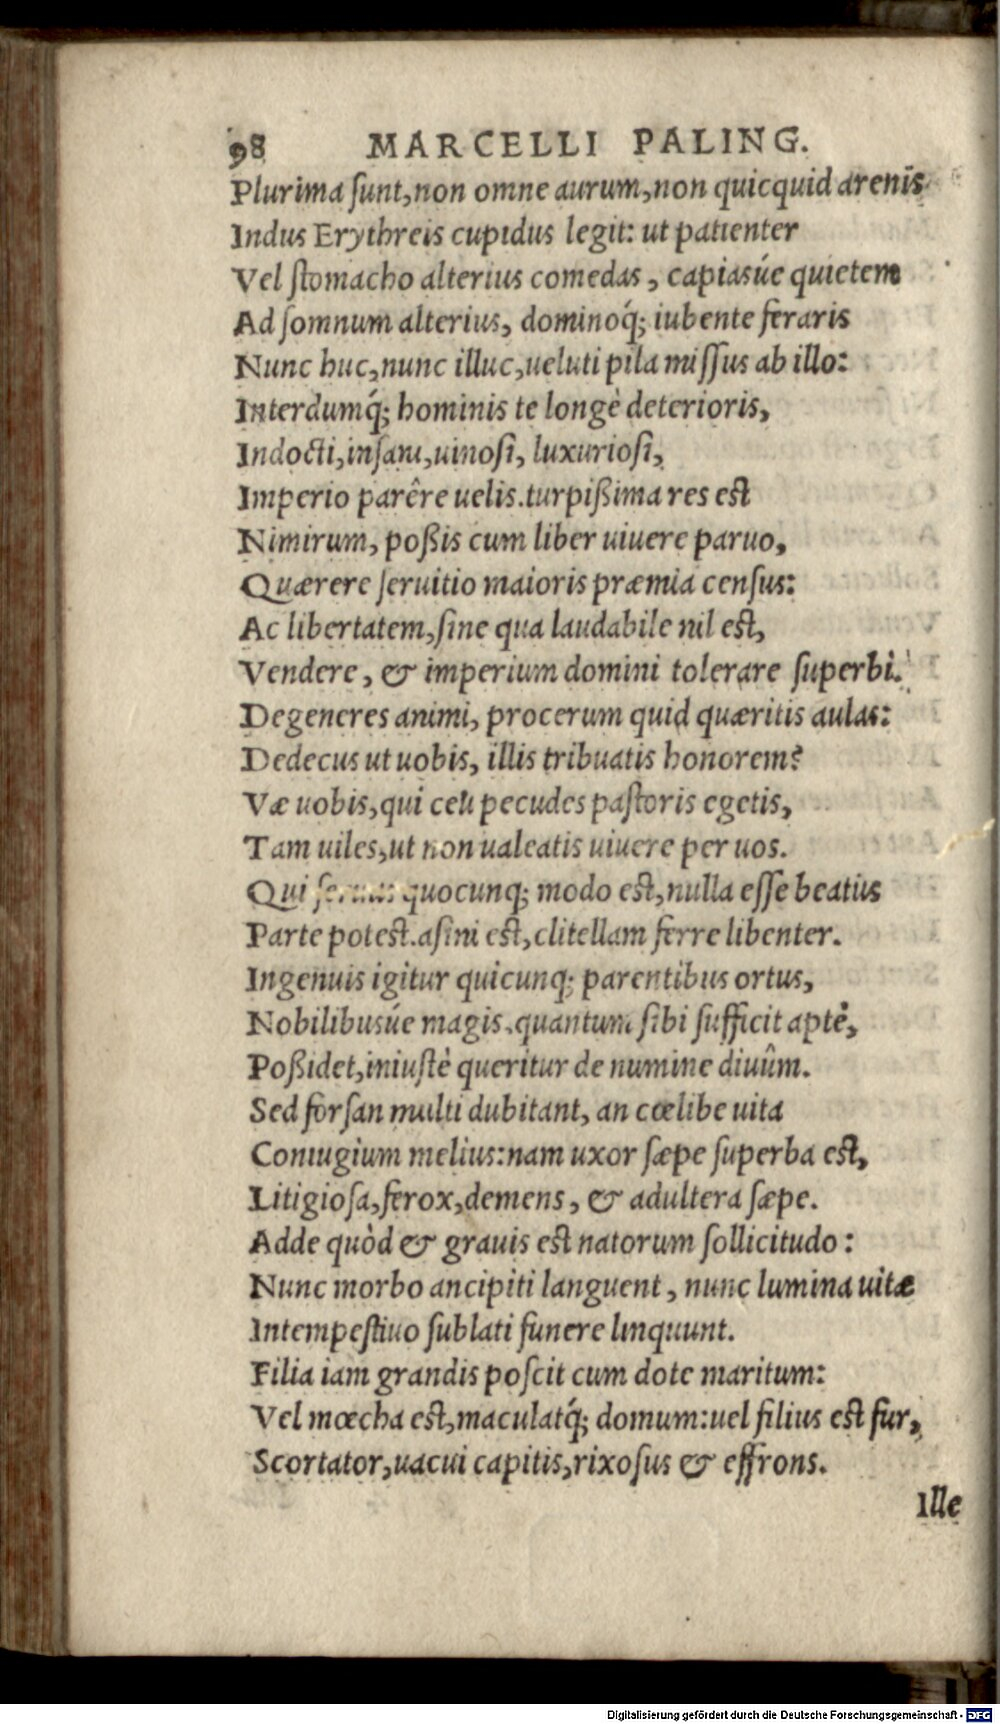 98 MARCELLI PALING.
Plurima ſunt, non omne aurum, non quicquid arenis
Indus Erythreis cupidus legit: ut patienter
Vel ſtomacho alterius comedas, capiasúe quietem
Ad ſomnum alterius, dominoq́; iubente feraris
Nunc huc, nunc illuc, ueluti pila miſſus ab illo:
Interdumq́; hominis te longè deterioris,
Indocti, inſani, uinoſi, luxurioſi,
Imperio parêre uelis. turpißima res est
Nimirum, poßis cum liber uiuere paruo,
Quærere ſeruitio maioris præmia cenſus:
Ac libertatem, ſine qua laudabile nil est,
Vendere, & imperium domini tolerare ſuperbi.
Degeneres animi, procerum quid quæritis aulas:
Dedecus ut uobis, illis tribuatis honorem?
Væ uobis, qui ceu pecudes paſtoris egetis,
Tam uiles, ut non ualeatis uiuere per uos.
Qui quocunq; modo est, nulla eſſe beatus
Parte potest. aſini est, clitellam ferre libenter.
Ingenuis igitur quicunq; parentibus ortus,
Nobilibusúe magis, quantum ſibi ſufficit aptè,
Poßidet, iniuſtè queritur de numine diuûm.
Sed forſan multi dubitant, an cœlibe uita
Coniugium melius: nam uxor ſæpe ſuperba est,
Litigioſa, ferox, demens, & adultera ſæpe.
Adde quòd & grauis est natorum ſollicitudo:
Nunc morbo ancipiti languent, nunc lumina uitæ
Intempeſtiuo ſublati funere linquunt.
Filia iam grandis poſcit cum dote maritum:
Vel mœcha est, maculatq́; domum: uel filius est fur,
Scortator, uacui capitis, rixoſus & effrons.
Ille
Digitalisierung gefördert durch die Deutsche Forschungsgemeinschaft - DFG